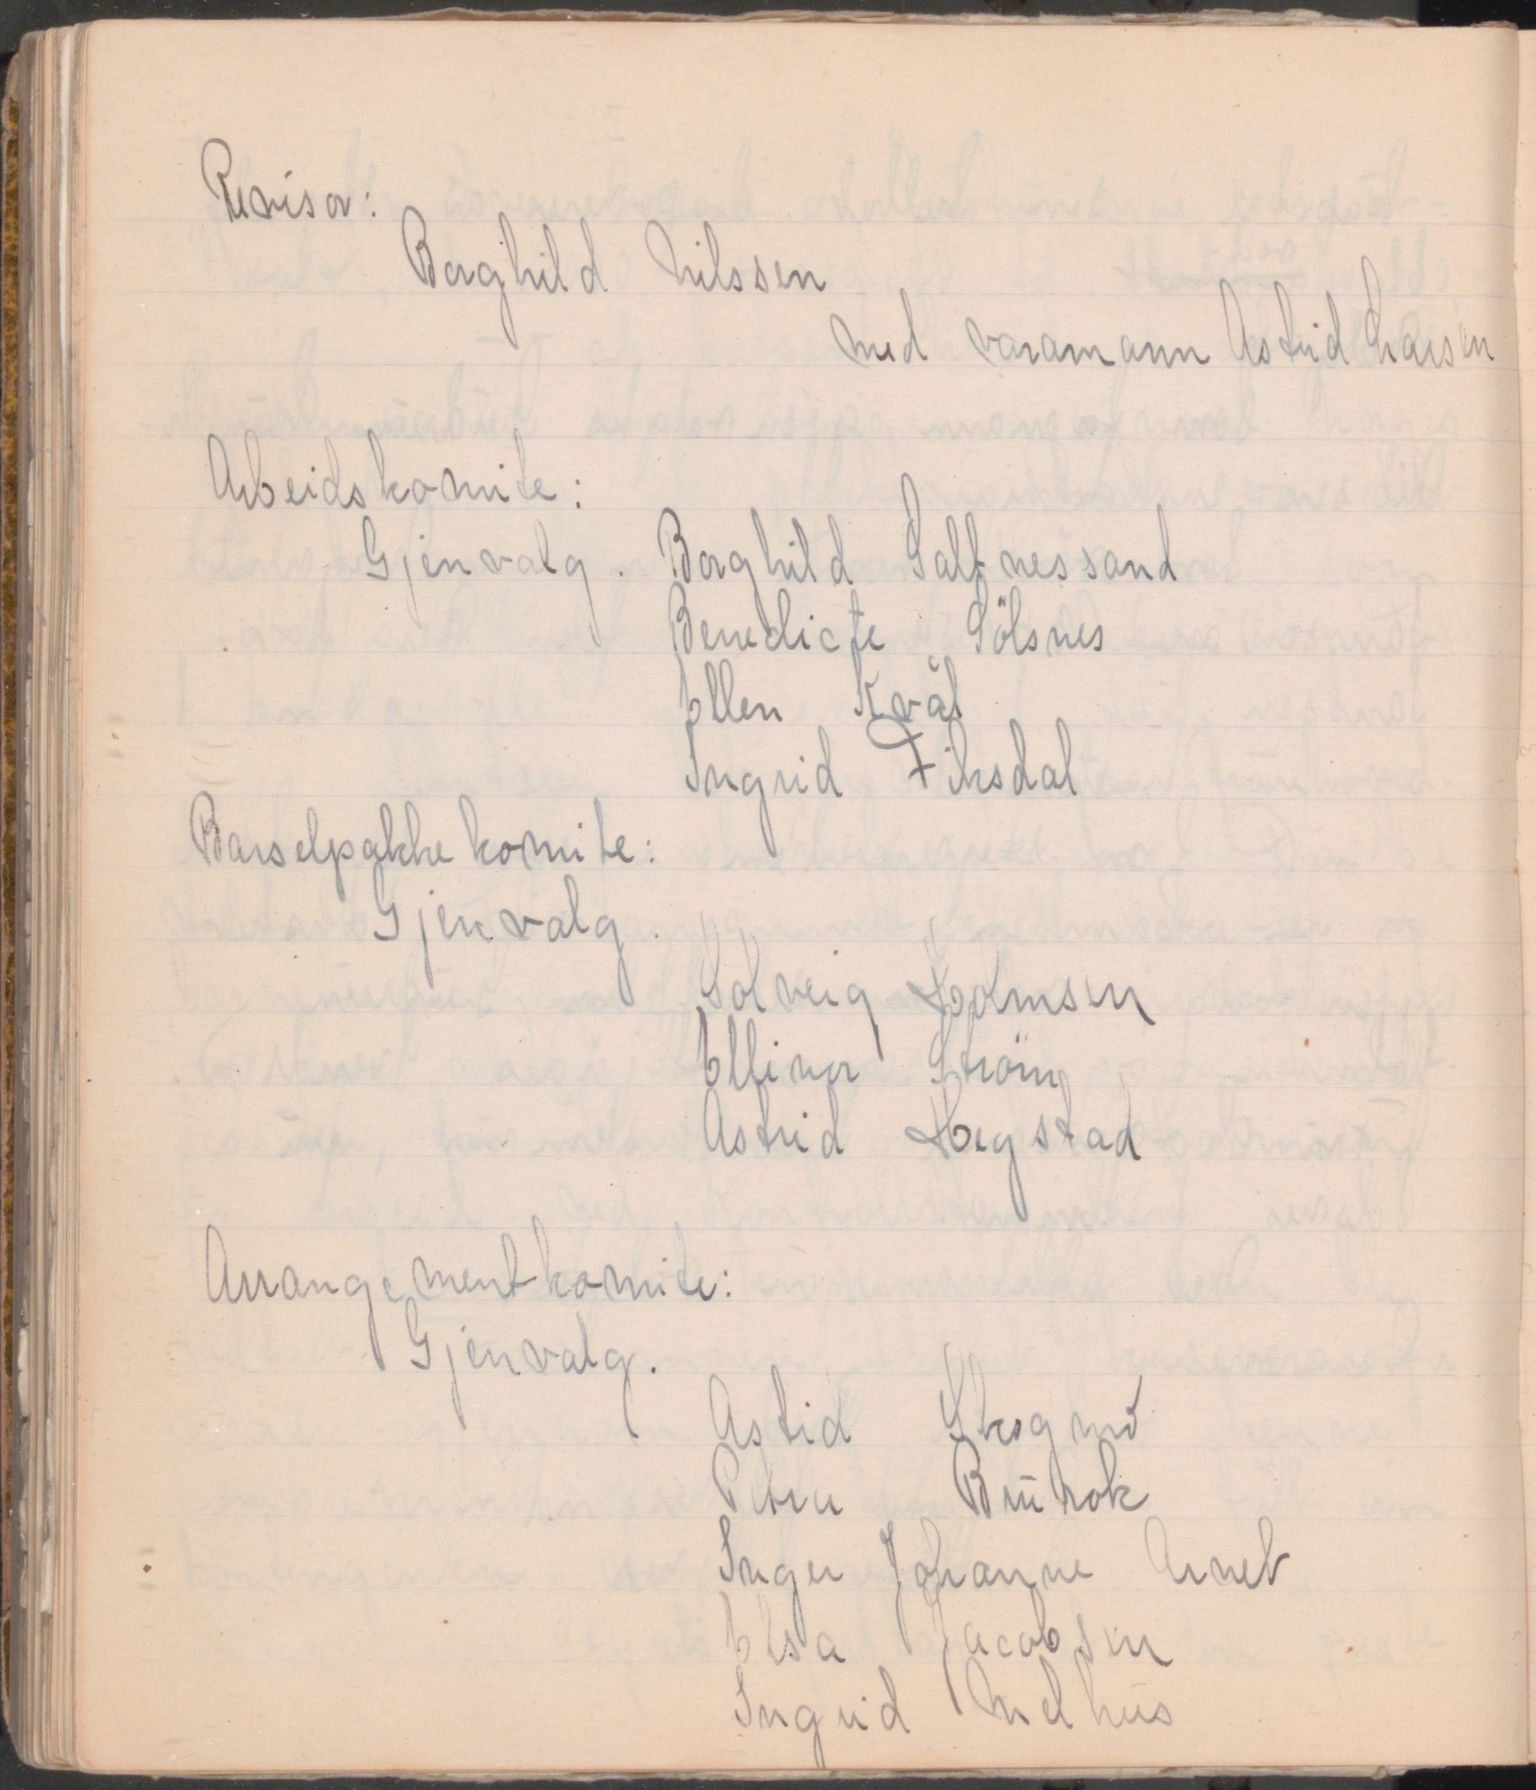 Revisor:
Borghild Nilssen
med varamann Astrid Larsen
Arbeidskomite:
Gjenvalg. Borghild Saltnessand
Benedicte Sölsnes
Ellen Kvål
Ingrid Fiksdal
Barselpakke komite:
Gjenvalg.
Solveig Holmsen
Ellinor Ström
Astrid Hegstad
Arrangementkomite:
Gjenvalg.
Astid Skogmo
Petra Buürok
Inger Johanne Arnet
Elsa Jacobsen
Ingrid Melhus